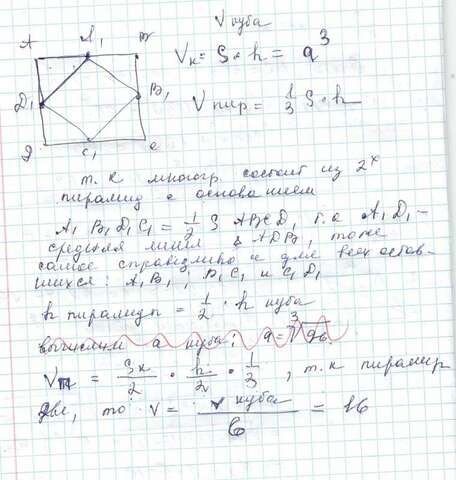 V куба
A A₁ B
Vк = S · h = a³
D₁ B₁
V пир = 1/3 S · h
Д C₁ C
т.к многогр. состоит из 2х
пирамид с основанием
A₁ B₁ D₁ C₁ = 1/2 S ABCD, т.к A₁D₁ –
средняя линия ADB, тоже
самое справедливо и для всех остав-
шихся: A₁B₁, B₁C₁ и C₁D₁
h пирамид = 1/2 · h куба
вычислим a куба; a = ³√96
V = Sк/2 · h/2 · 1/3, т.к пирамид
две, то V = V куба / 6 = 16